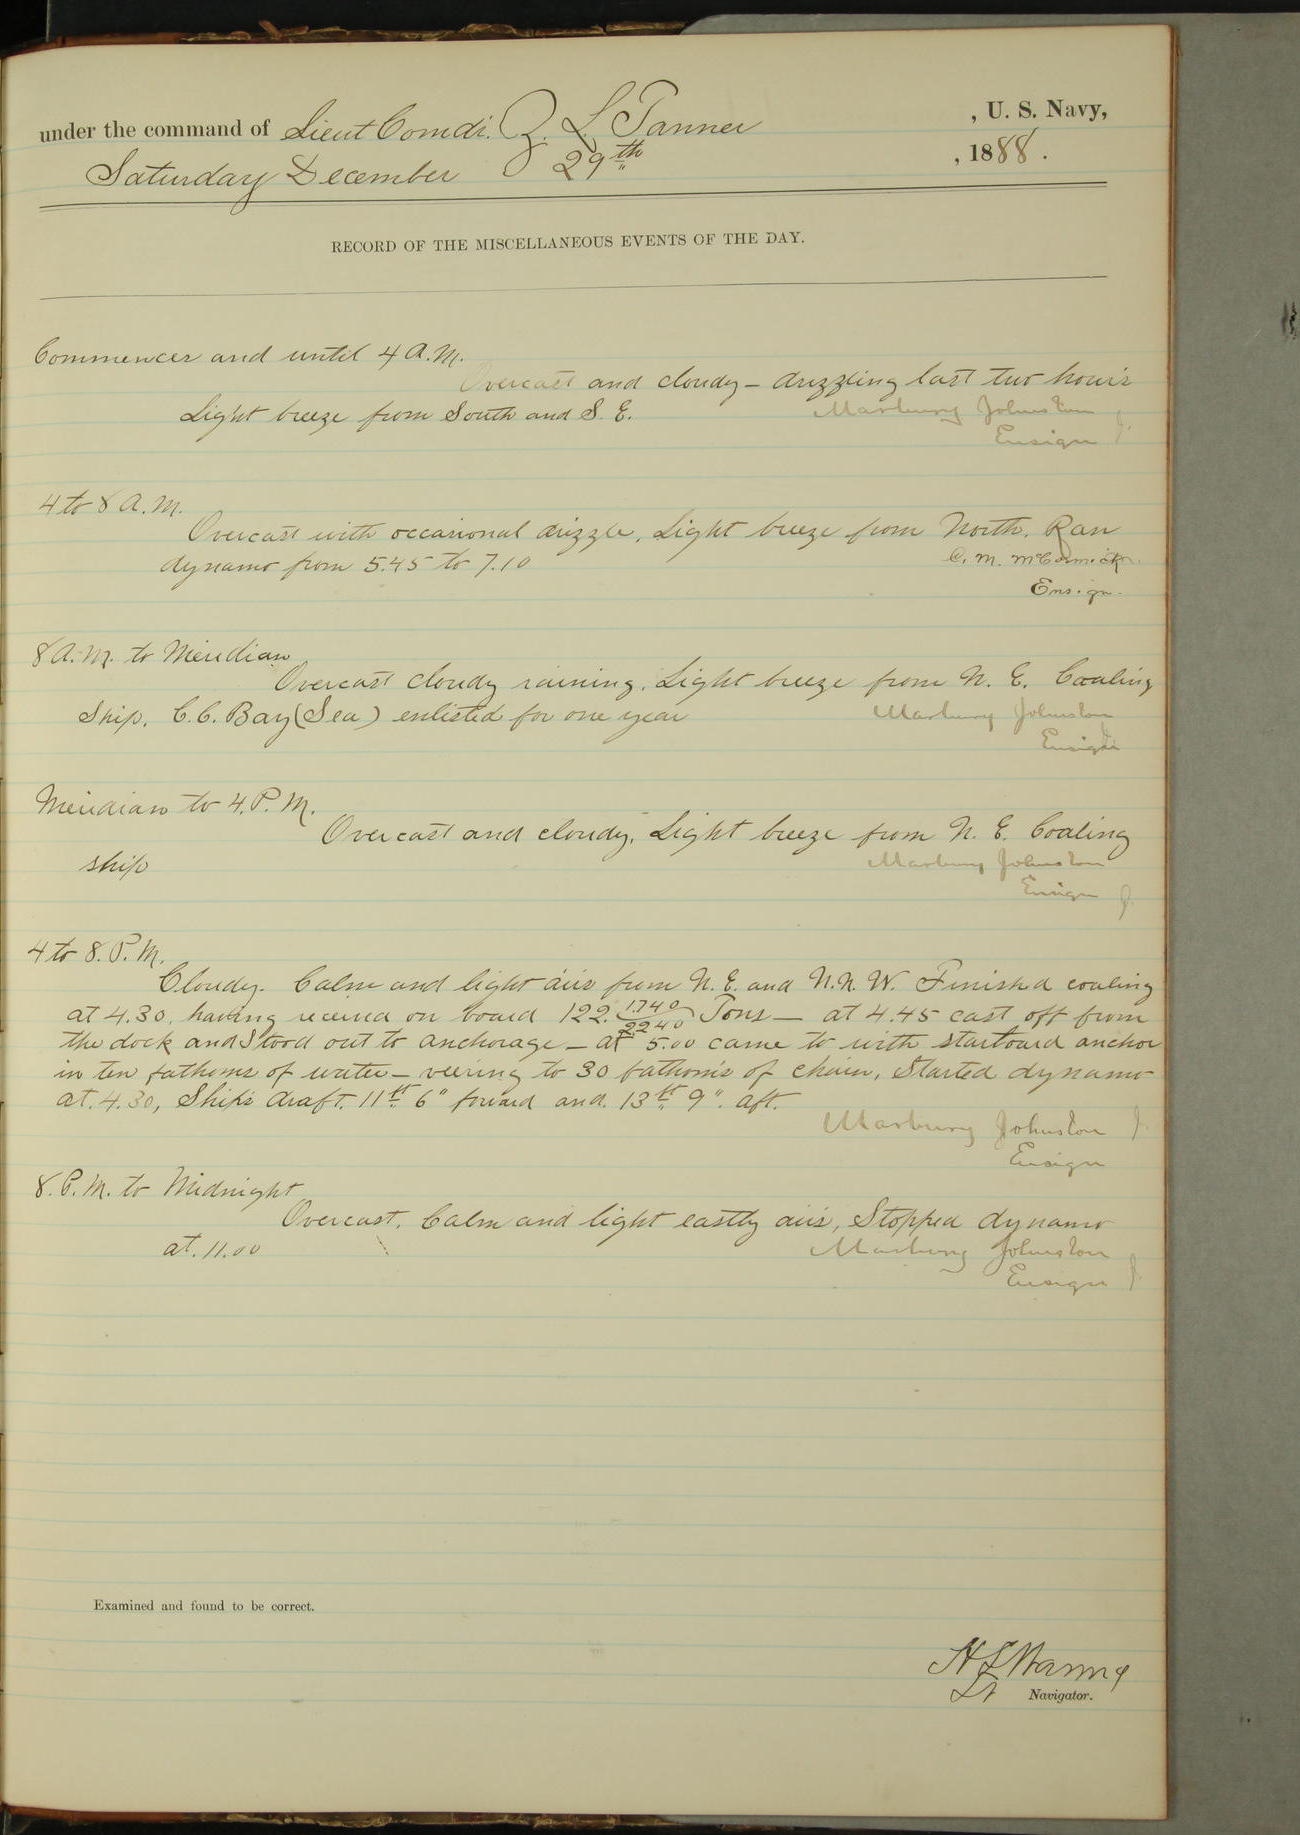 under the command of Lieut Comdr. Z. L. Tanner , U. S. Navy,
Saturday December 29th , 1888.
RECORD OF THE MISCELLANEOUS EVENTS OF THE DAY.
Commences and until 4 A.M.
Overcast and cloudy - drizzling last two hours
Light breeze from South and S. E. Marbury Johnston
Ensign
4 to 8 A.M.
Overcast with occasional drizzle, Light breeze from North. Ran
dynamo from 5.45 to 7.10 C. M. McCormick
Ensign.
8 A.M. to Meridian
Overcast cloudy raining. Light breeze from N. E. Coaling
Ship. C.C. Bay (Sea) enlisted for one year Marbury Johnston
Ensign
Meridian to 4. P. M.
Overcast and cloudy, Light breeze from N. E. Coaling
ship Marbury Johnston
Ensign
4 to 8. P. M.
Cloudy. Calm and light airs from N. E. and N. N. W. Finished coaling
at 4.30, having received on board 122. 1740/2240 Tons - at 4.45 cast off from
the dock and Stood out to anchorage - at 5.00 came to with starboard anchor
in ten fathoms of water - veering to 30 fathoms of chain, Started dynamo
at. 4.30, Ship's draft. 11 ft. 6" forward and. 13 ft. 9". aft.
Marbury Johnston
Ensign
8. P. M. to Midnight
Overcast. Calm and light eastly airs, Stopped dynamo
at. 11.00 Marbury Johnston
Ensign
Examined and found to be correct.
Lt Navigator.